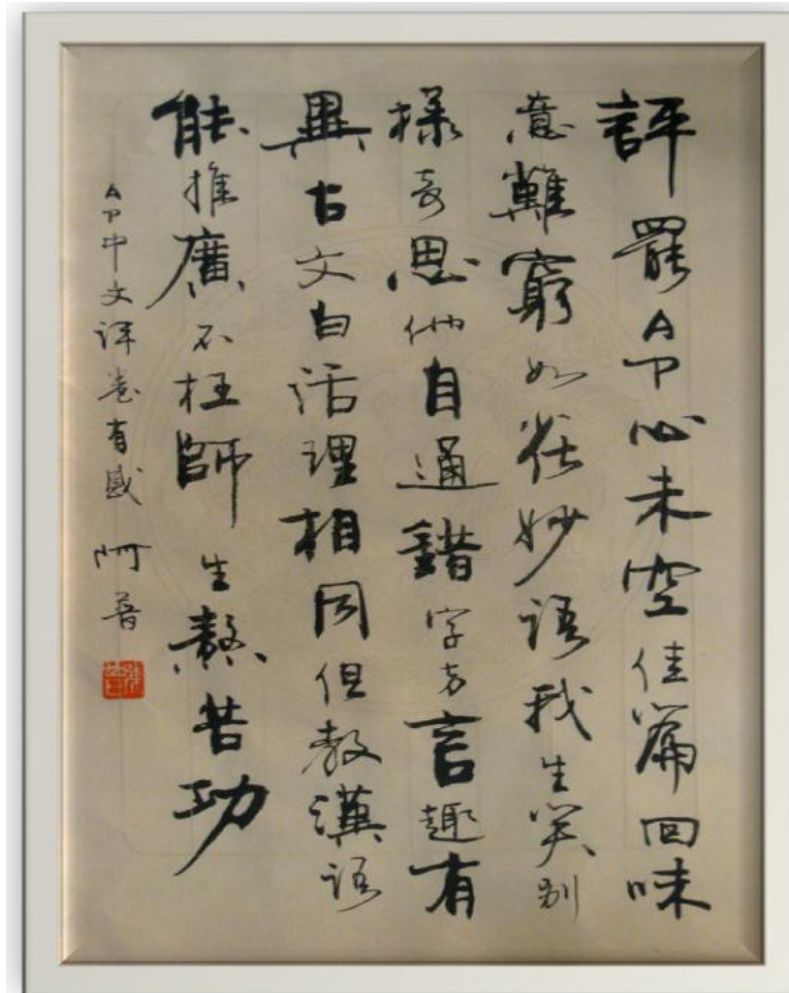 評罷AP心未空佳篇回味
意難窮如妙語我生笑別
樣奇思他自通錯字方言趣有
異古文白話理相同但教漢語
能推廣不枉師生熬苦功
AP中文評卷有感 阿普